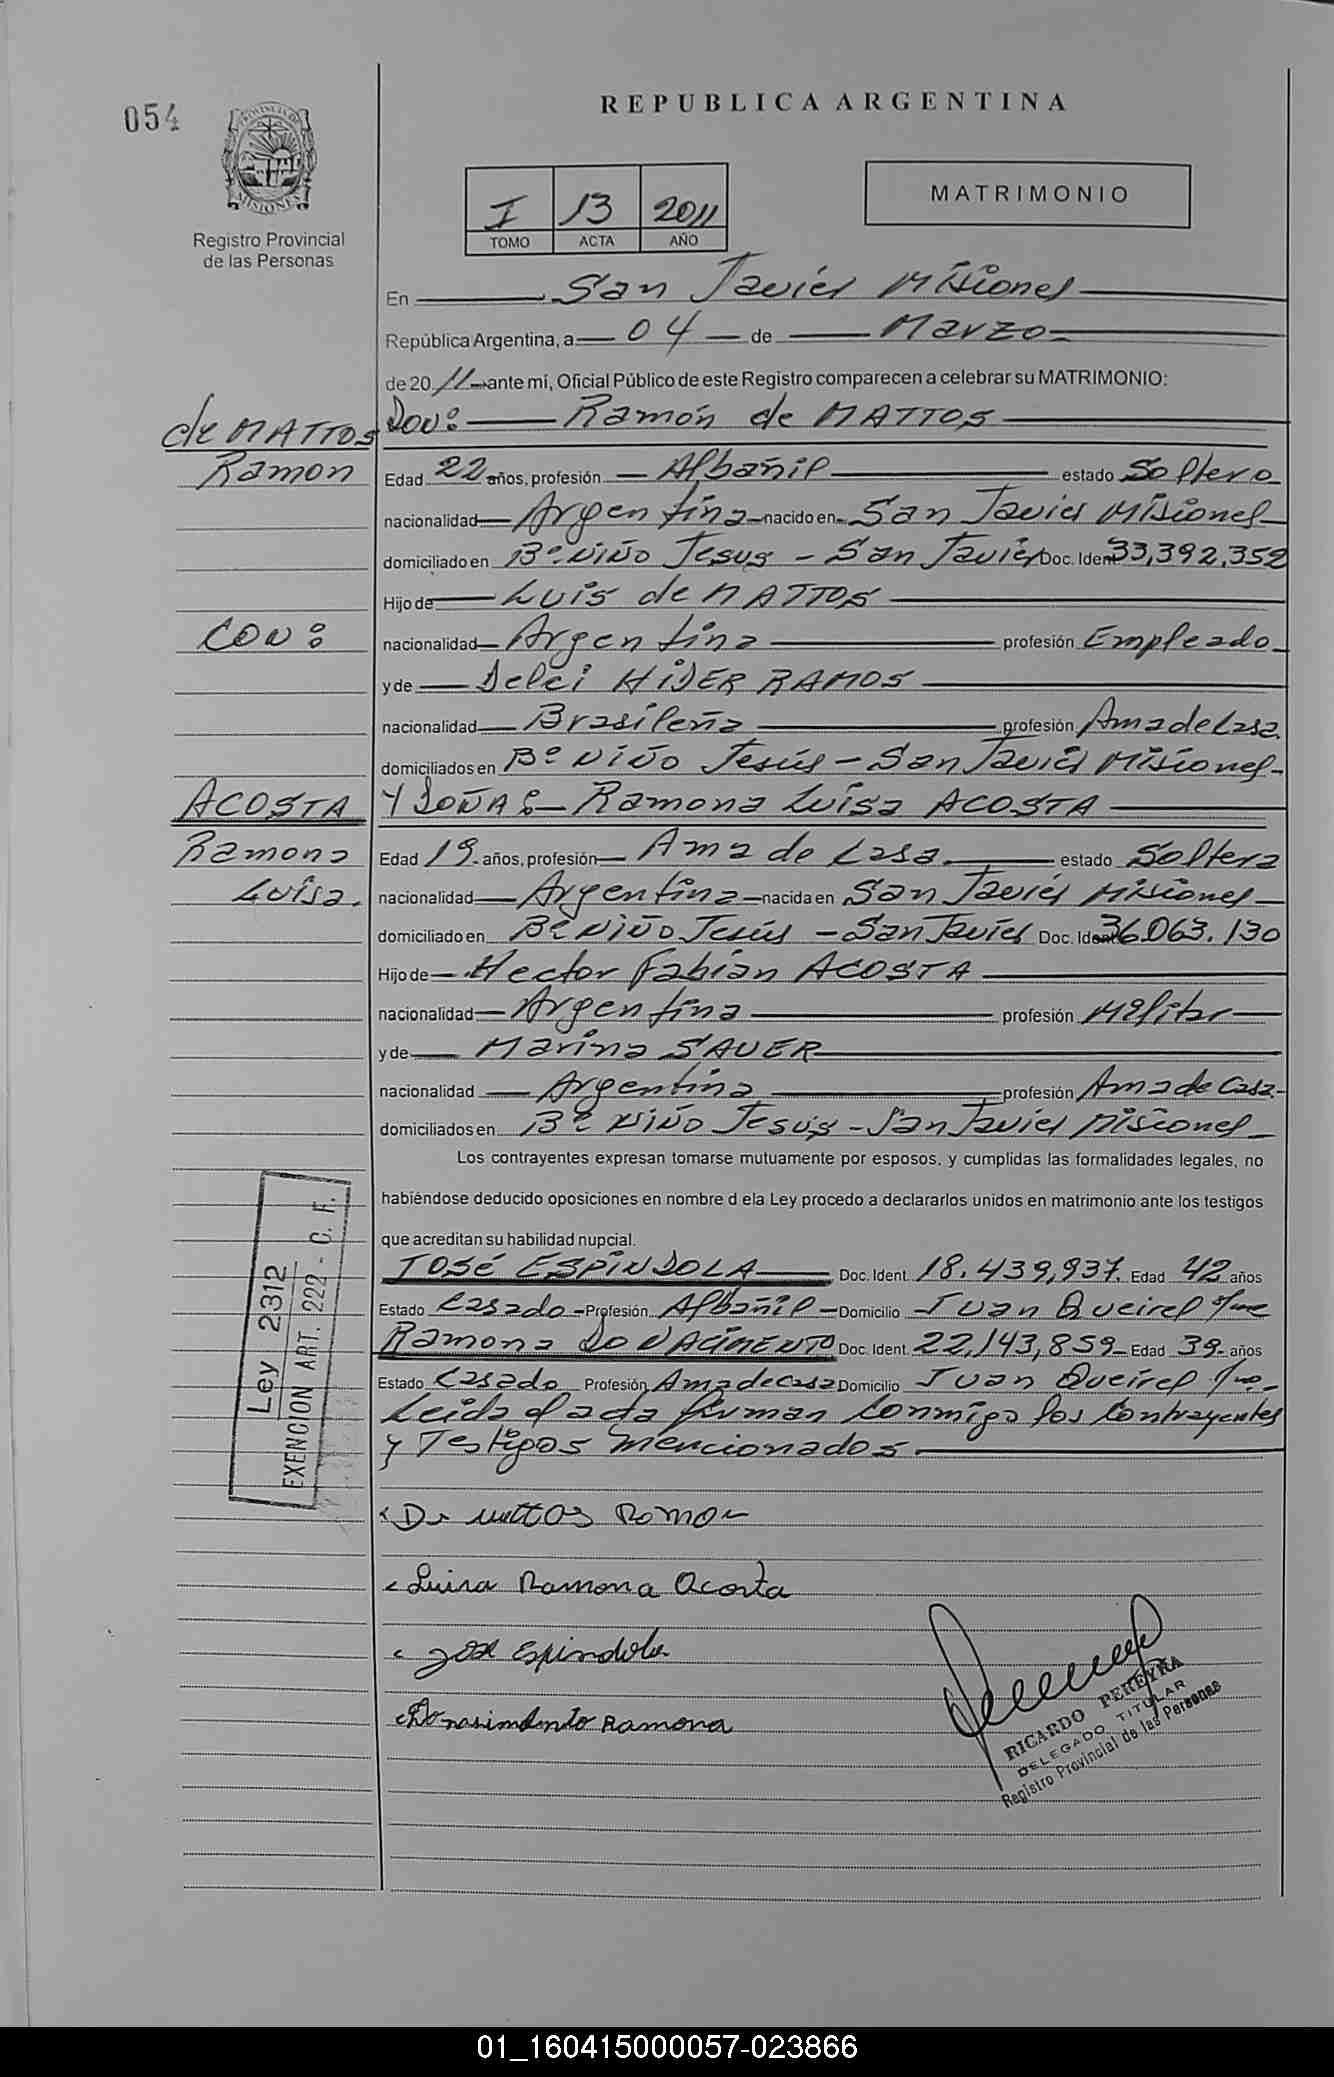 054
PROVINCIA DE
MISIONES
Registro Provincial
de las Personas
REPUBLICA ARGENTINA
I 13 2011
TOMO ACTA AÑO
MATRIMONIO
En San Javier Misiones
República Argentina, a 04 de Marzo
de 20 11 ante mí, Oficial Público de este Registro comparecen a celebrar su MATRIMONIO:
de MATTOS
Ramon
CON:
ACOSTA
Ramona
Luisa.
DON: Ramón de MATTOS
Edad 22 años, profesión Albañil estado Soltero
nacionalidad Argentina nacido en San Javier Misiones
domiciliado en Bº NIÑO Jesus - San Javier Doc. Ident. 33,392,352
Hijo de Luis de MATTOS
nacionalidad Argentina profesión Empleado
y de Delci HIDER RAMOS
nacionalidad Brasileña profesión Ama de Casa.
domiciliados en Bº NIÑO Jesús - San Javier Misiones
Y DOÑA: Ramona Luisa ACOSTA
Edad 19 años, profesión Ama de Casa. estado Soltera
nacionalidad Argentina nacida en San Javier Misiones
domiciliado en Bº NIÑO Jesús - San Javier Doc. Ident. 36.063.130
Hijo de Hector Fabian ACOSTA
nacionalidad Argentina profesión Militar
y de Marina SAUER
nacionalidad Argentina profesión Ama de Casa.
domiciliados en Bº NIÑO Jesús - San Javier Misiones
Los contrayentes expresan tomarse mutuamente por esposos, y cumplidas las formalidades legales, no
habiéndose deducido oposiciones en nombre d ela Ley procedo a declararlos unidos en matrimonio ante los testigos
que acreditan su habilidad nupcial.
JOSÉ ESPINDOLA Doc. Ident. 18.439,937. Edad 42 años
Estado Casado Profesión Albañil Domicilio Juan Queirel s/nº
Ramona DO NACIMENTO Doc. Ident. 22,143,859 Edad 39 años
Estado Casado Profesión Ama de casa Domicilio Juan Queirel s/nº
Leida el acta firman conmigo los contrayentes
y Testigos mencionados
Ley 2312
EXENCION ART. 222 - C. F.
De mattos Ramon
Luisa Ramona Acosta
José Espindola
Do nasimento Ramona
RICARDO PEREYRA
DELEGADO TITULAR
Registro Provincial de las Personas
01_160415000057-023866